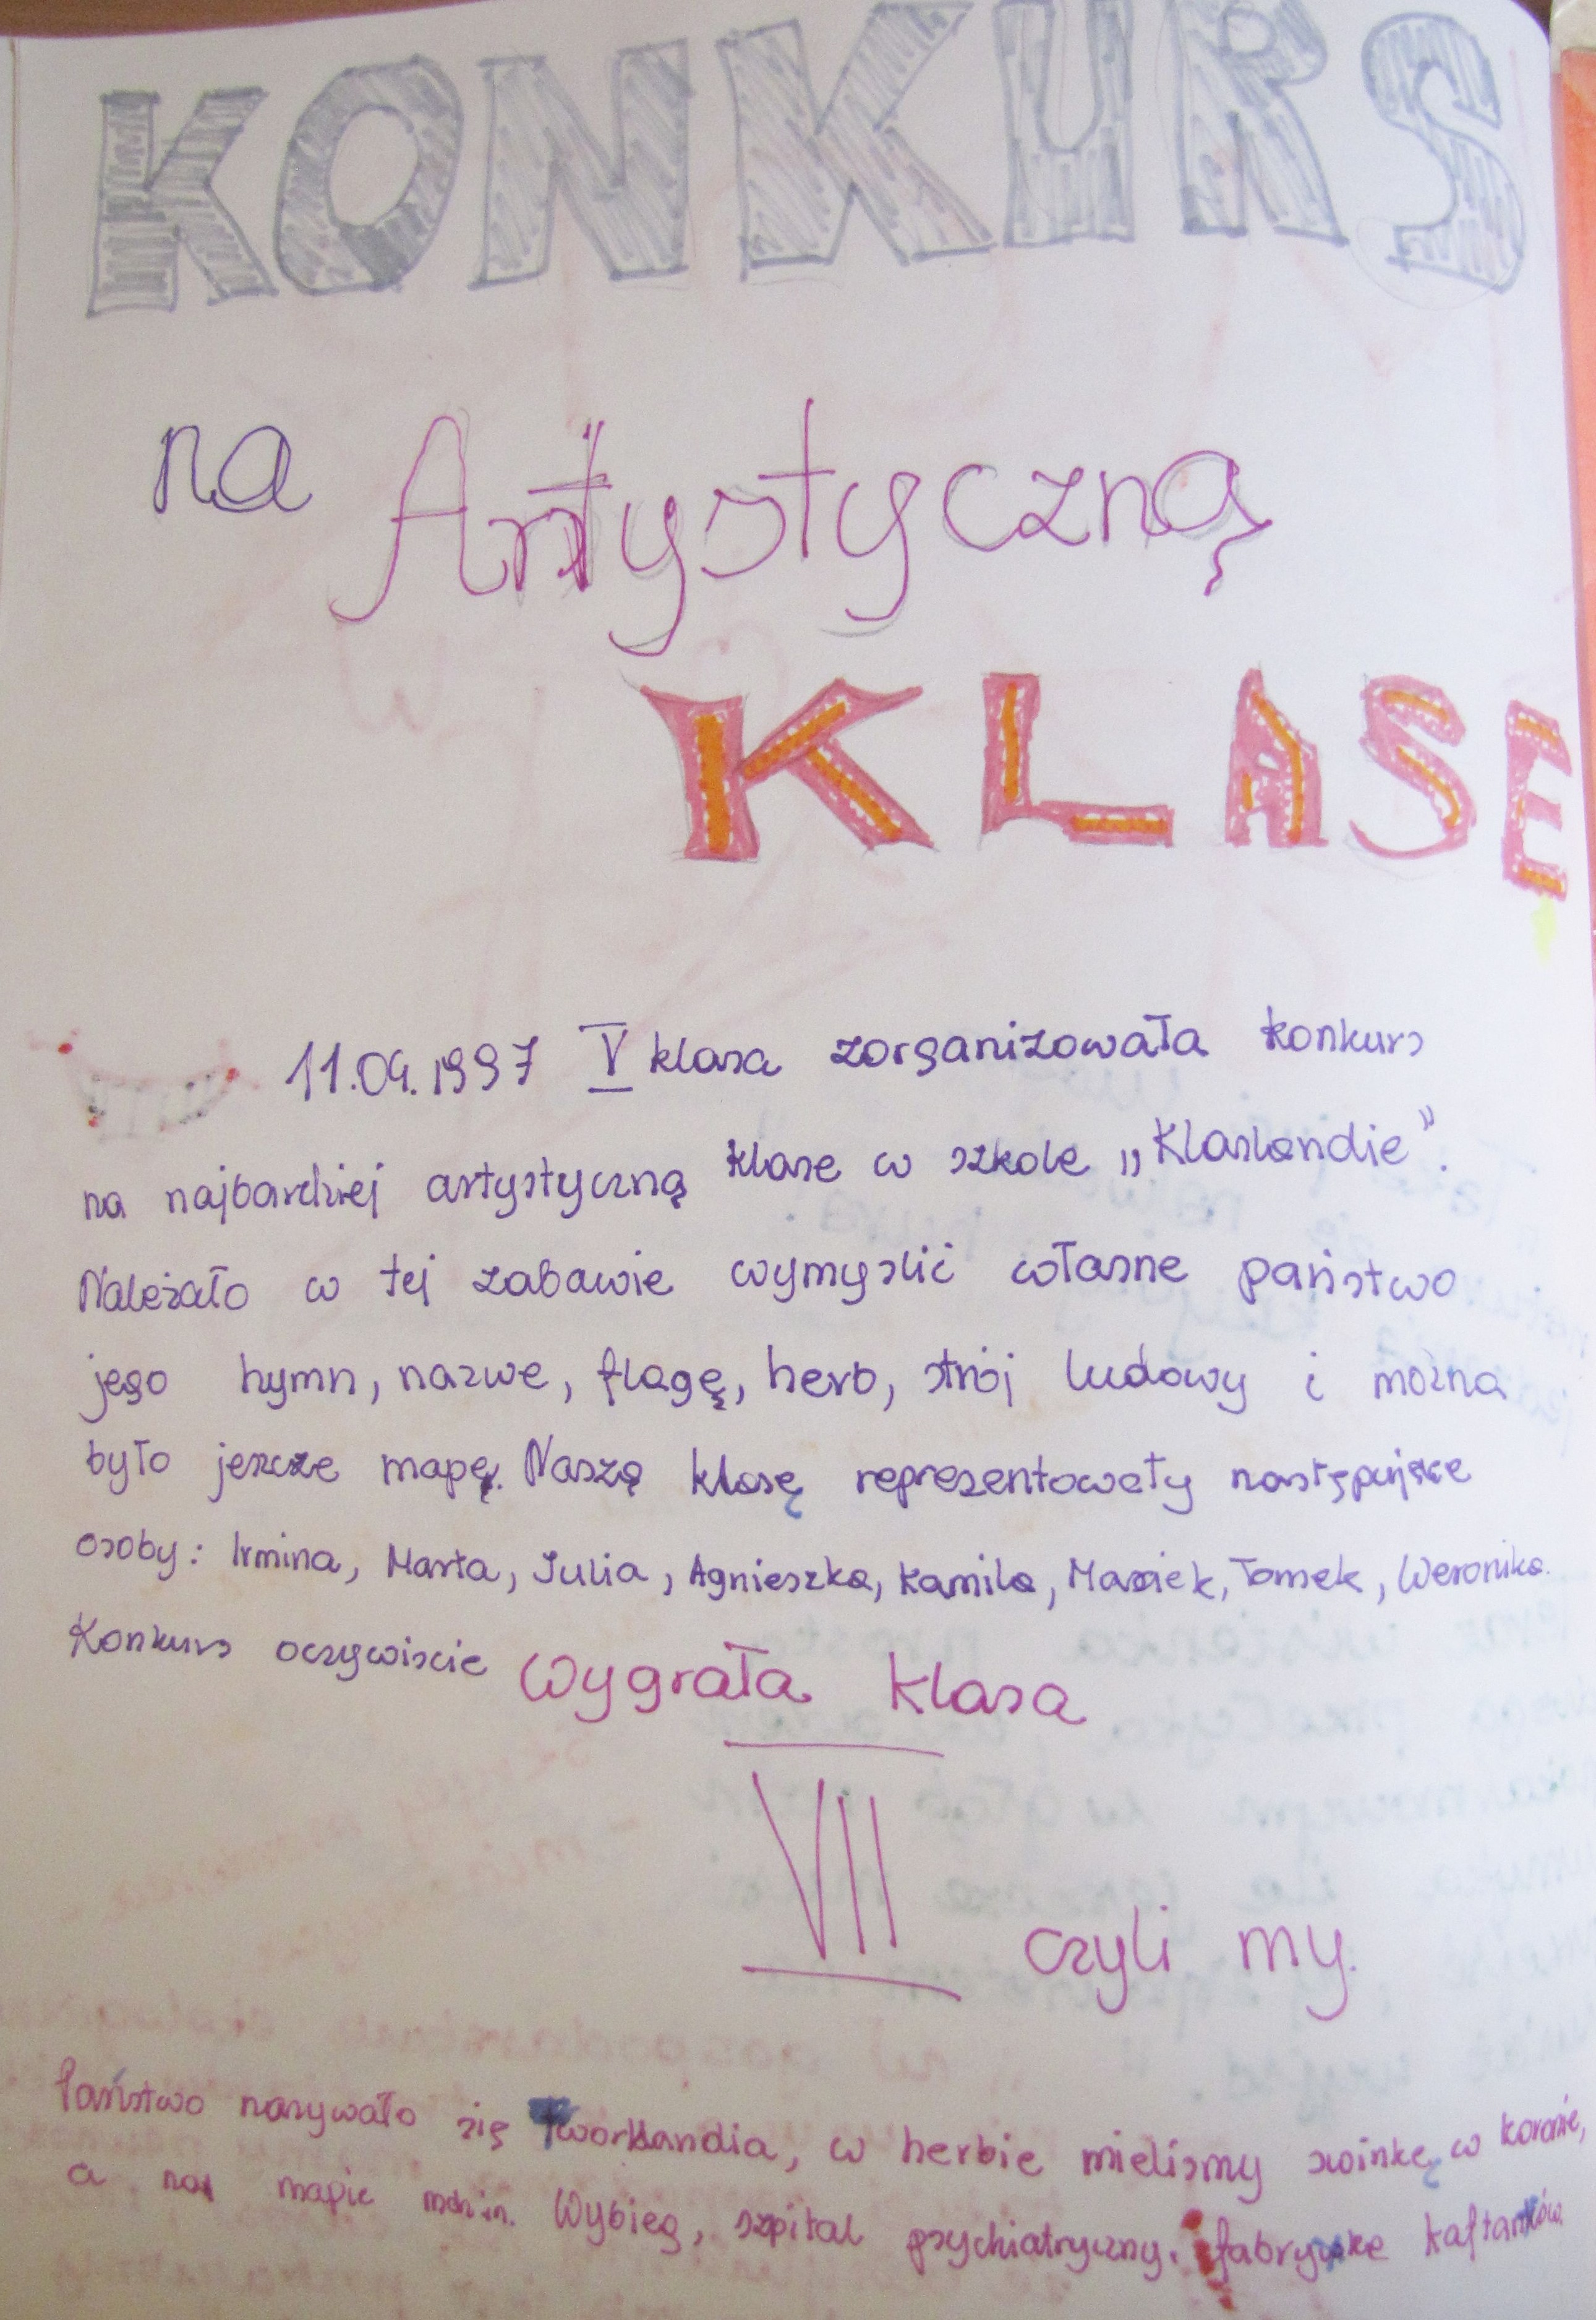 KONKURS
na Artystyczną
KLASĘ
11.04.1997 V klasa zorganizowała konkurs
na najbardziej artystyczną klase w szkole „Klaslandie".
Należało w tej zabawie wymyslić własne państwo
jego hymn, nazwe, flagę, herb, strój ludowy i można
było jeszcze mapę. Naszą klasę reprezentowały następujące
osoby: Irmina, Marta, Julia, Agnieszka, Kamila, Maciek, Tomek, Weronika.
Konkurs oczywiscie wygrała klasa
VII czyli my.
Państwo nazywało się Tworklandia, w herbie mielismy swinkę w koronie,
a na mapie m.in. Wybieg, szpital psychiatryczny. i fabryke kaftaników.